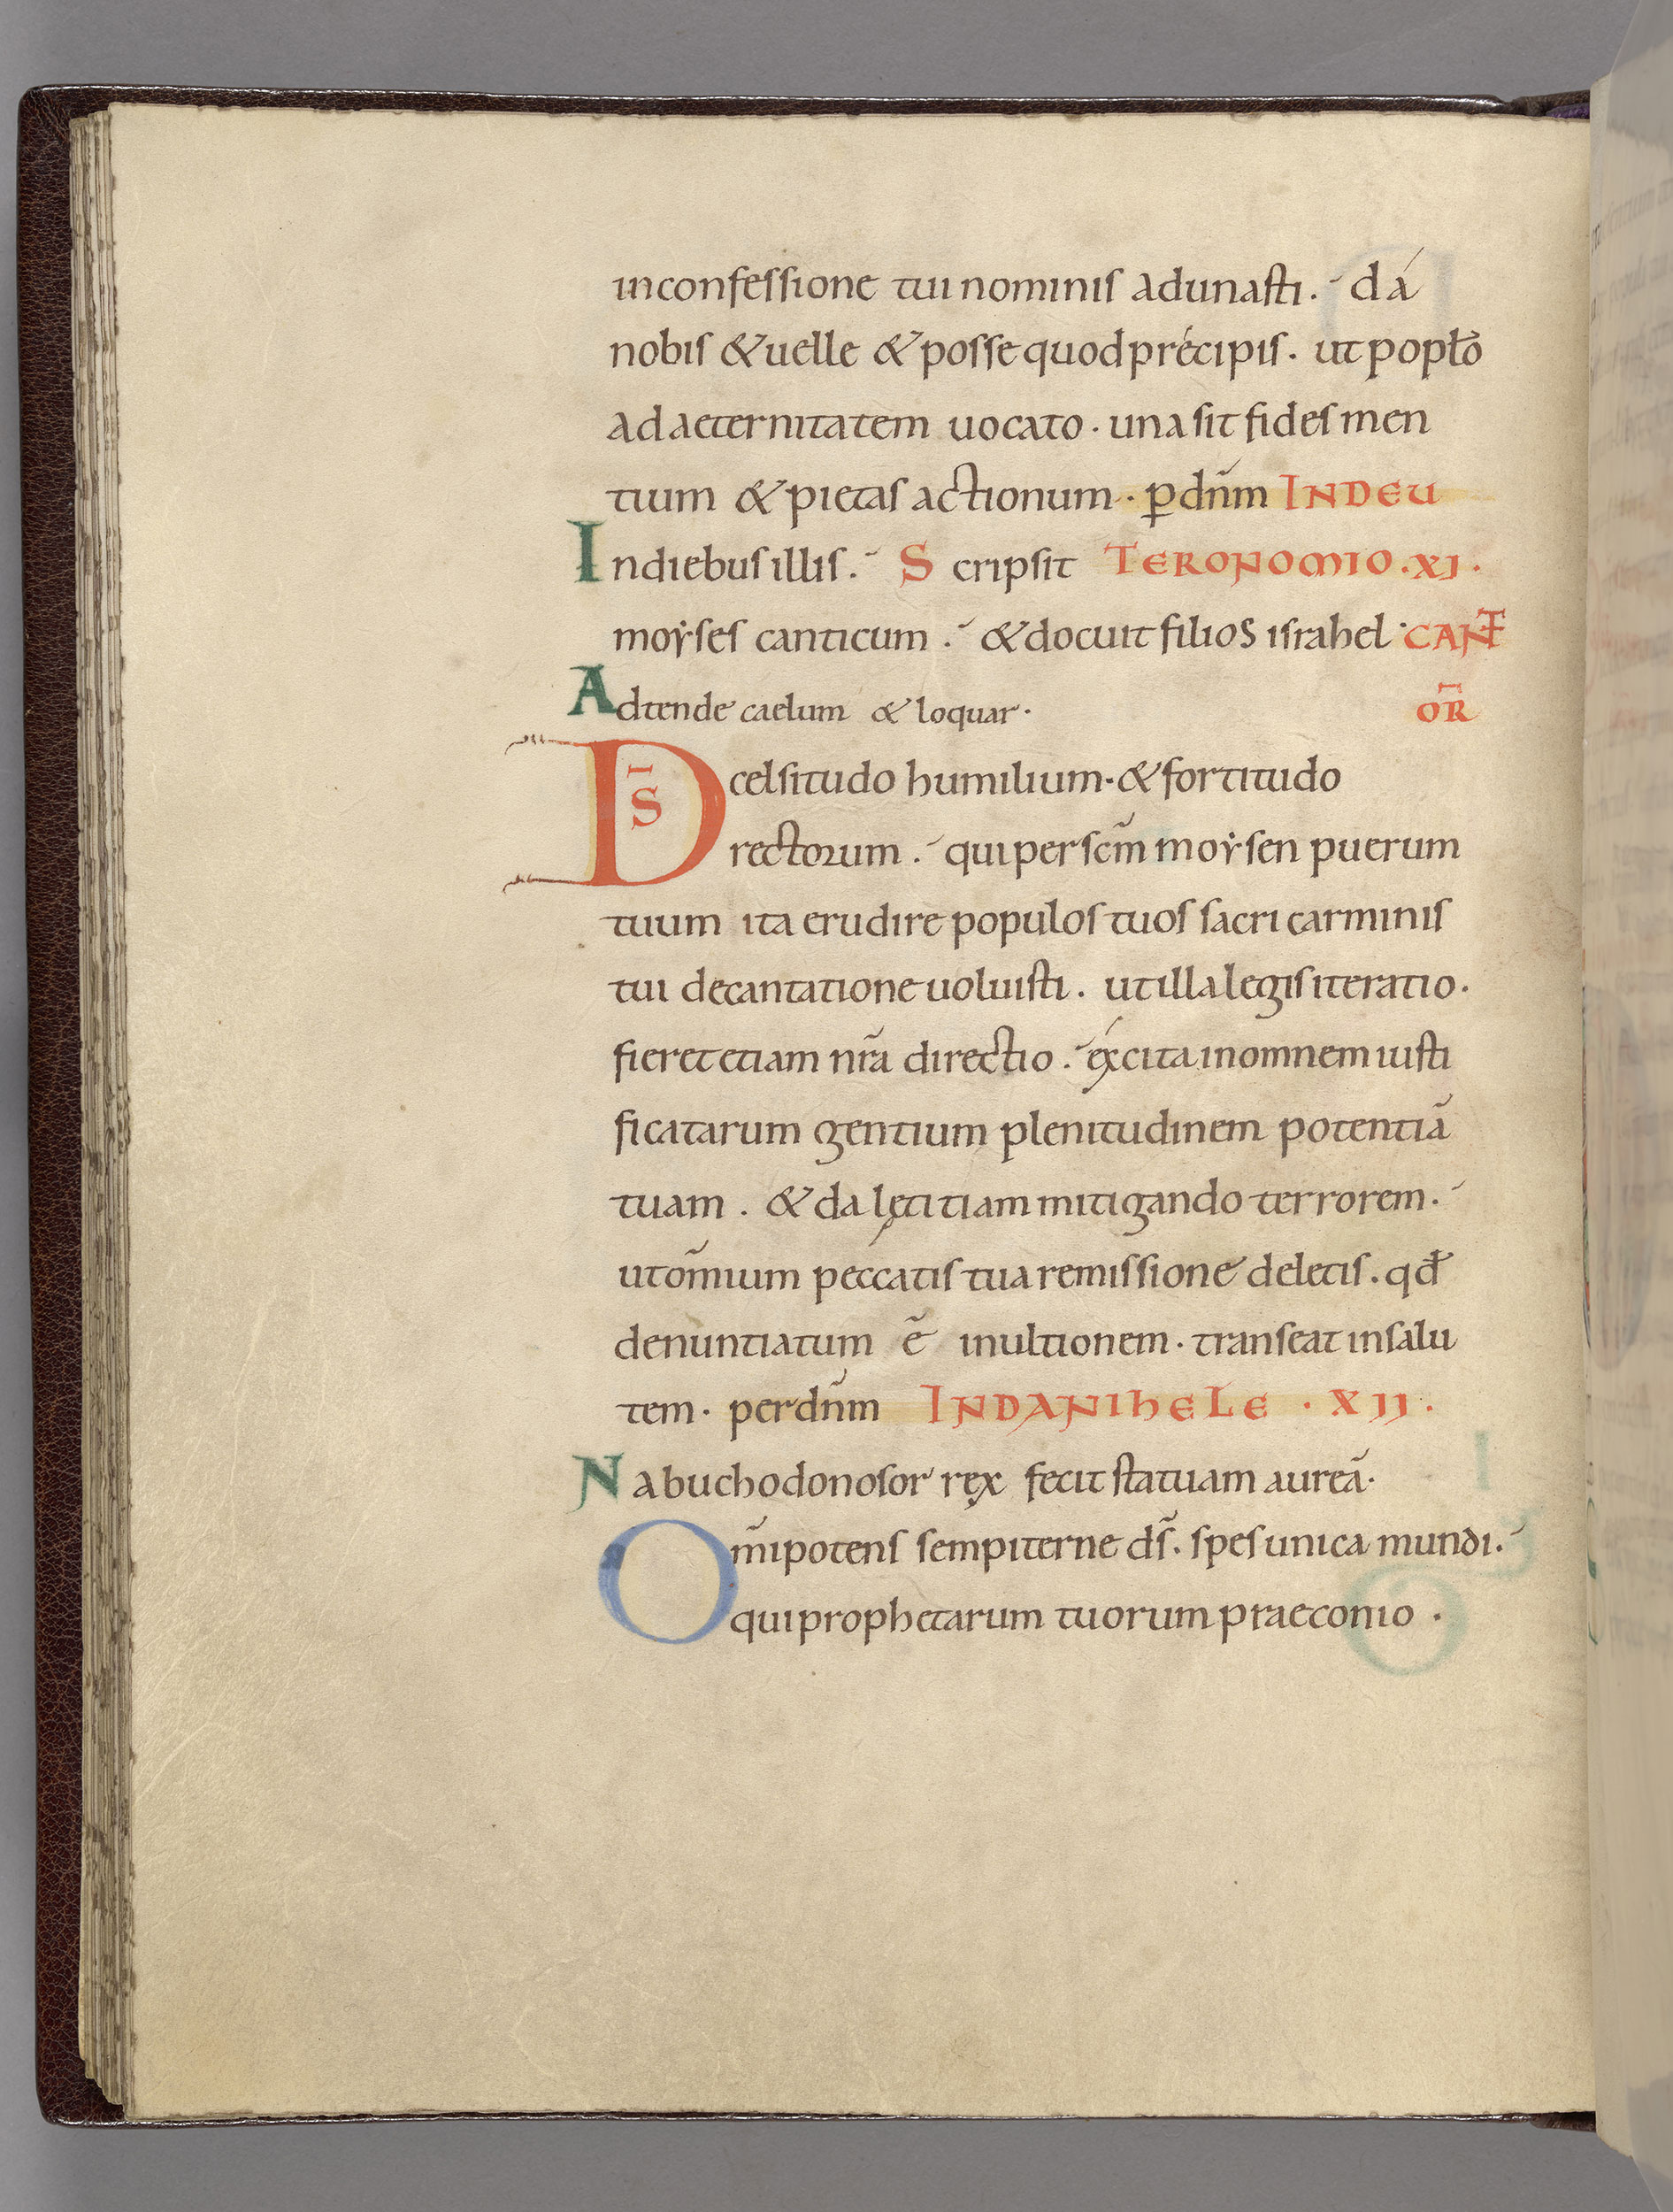 inconfessione tui nominis adunasti. dá
nobis &uelle & posse quod prę́cipis. ut popło
ad aeternitatem uocato. una sit fides men
tium & pietas actionum. ꝑ dn̄m INDEU
Indiebus illis. Scripsit TERONOMIO. XI.
moẏses canticum. & docuit filios israhel. CANT̄
Adtende caelum & loquar. OR̄
DS̄ celsitudo humilium. & fortitudo
rectorum. qui per scm̄ moẏsen puerum
tuum ita erudire populos tuos sacri carminis
tui decantatione uoluisti. ut illa legis iteratio.
fieret etiam nr̄a directio. éxcita inomnem iusti
ficatarum gentium plenitudinem potentiā
tuam. & da lętitiam mitigando terrorem.
ut om̄ium peccatis tua remissione deletis. qđ
denuntiatum ē inultionem. transeat insalu
tem. per dn̄m INDANIHELE. XII.
Nabuchodonosor rex fecit statuam aureā.
Om̄ipotens sempiterne ds̄. spes unica mundi.
qui prophetarum tuorum praeconio.